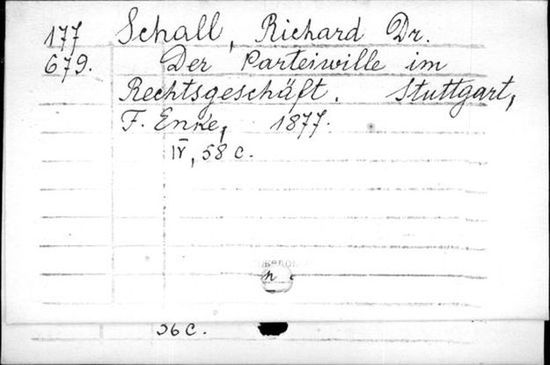 177 Schall, Richard Dr.
679. Der Parteiwille im
Rechtsgeschäft. Stuttgart,
F. Enke, 1877.
IV, 58 c.
n
36 c.